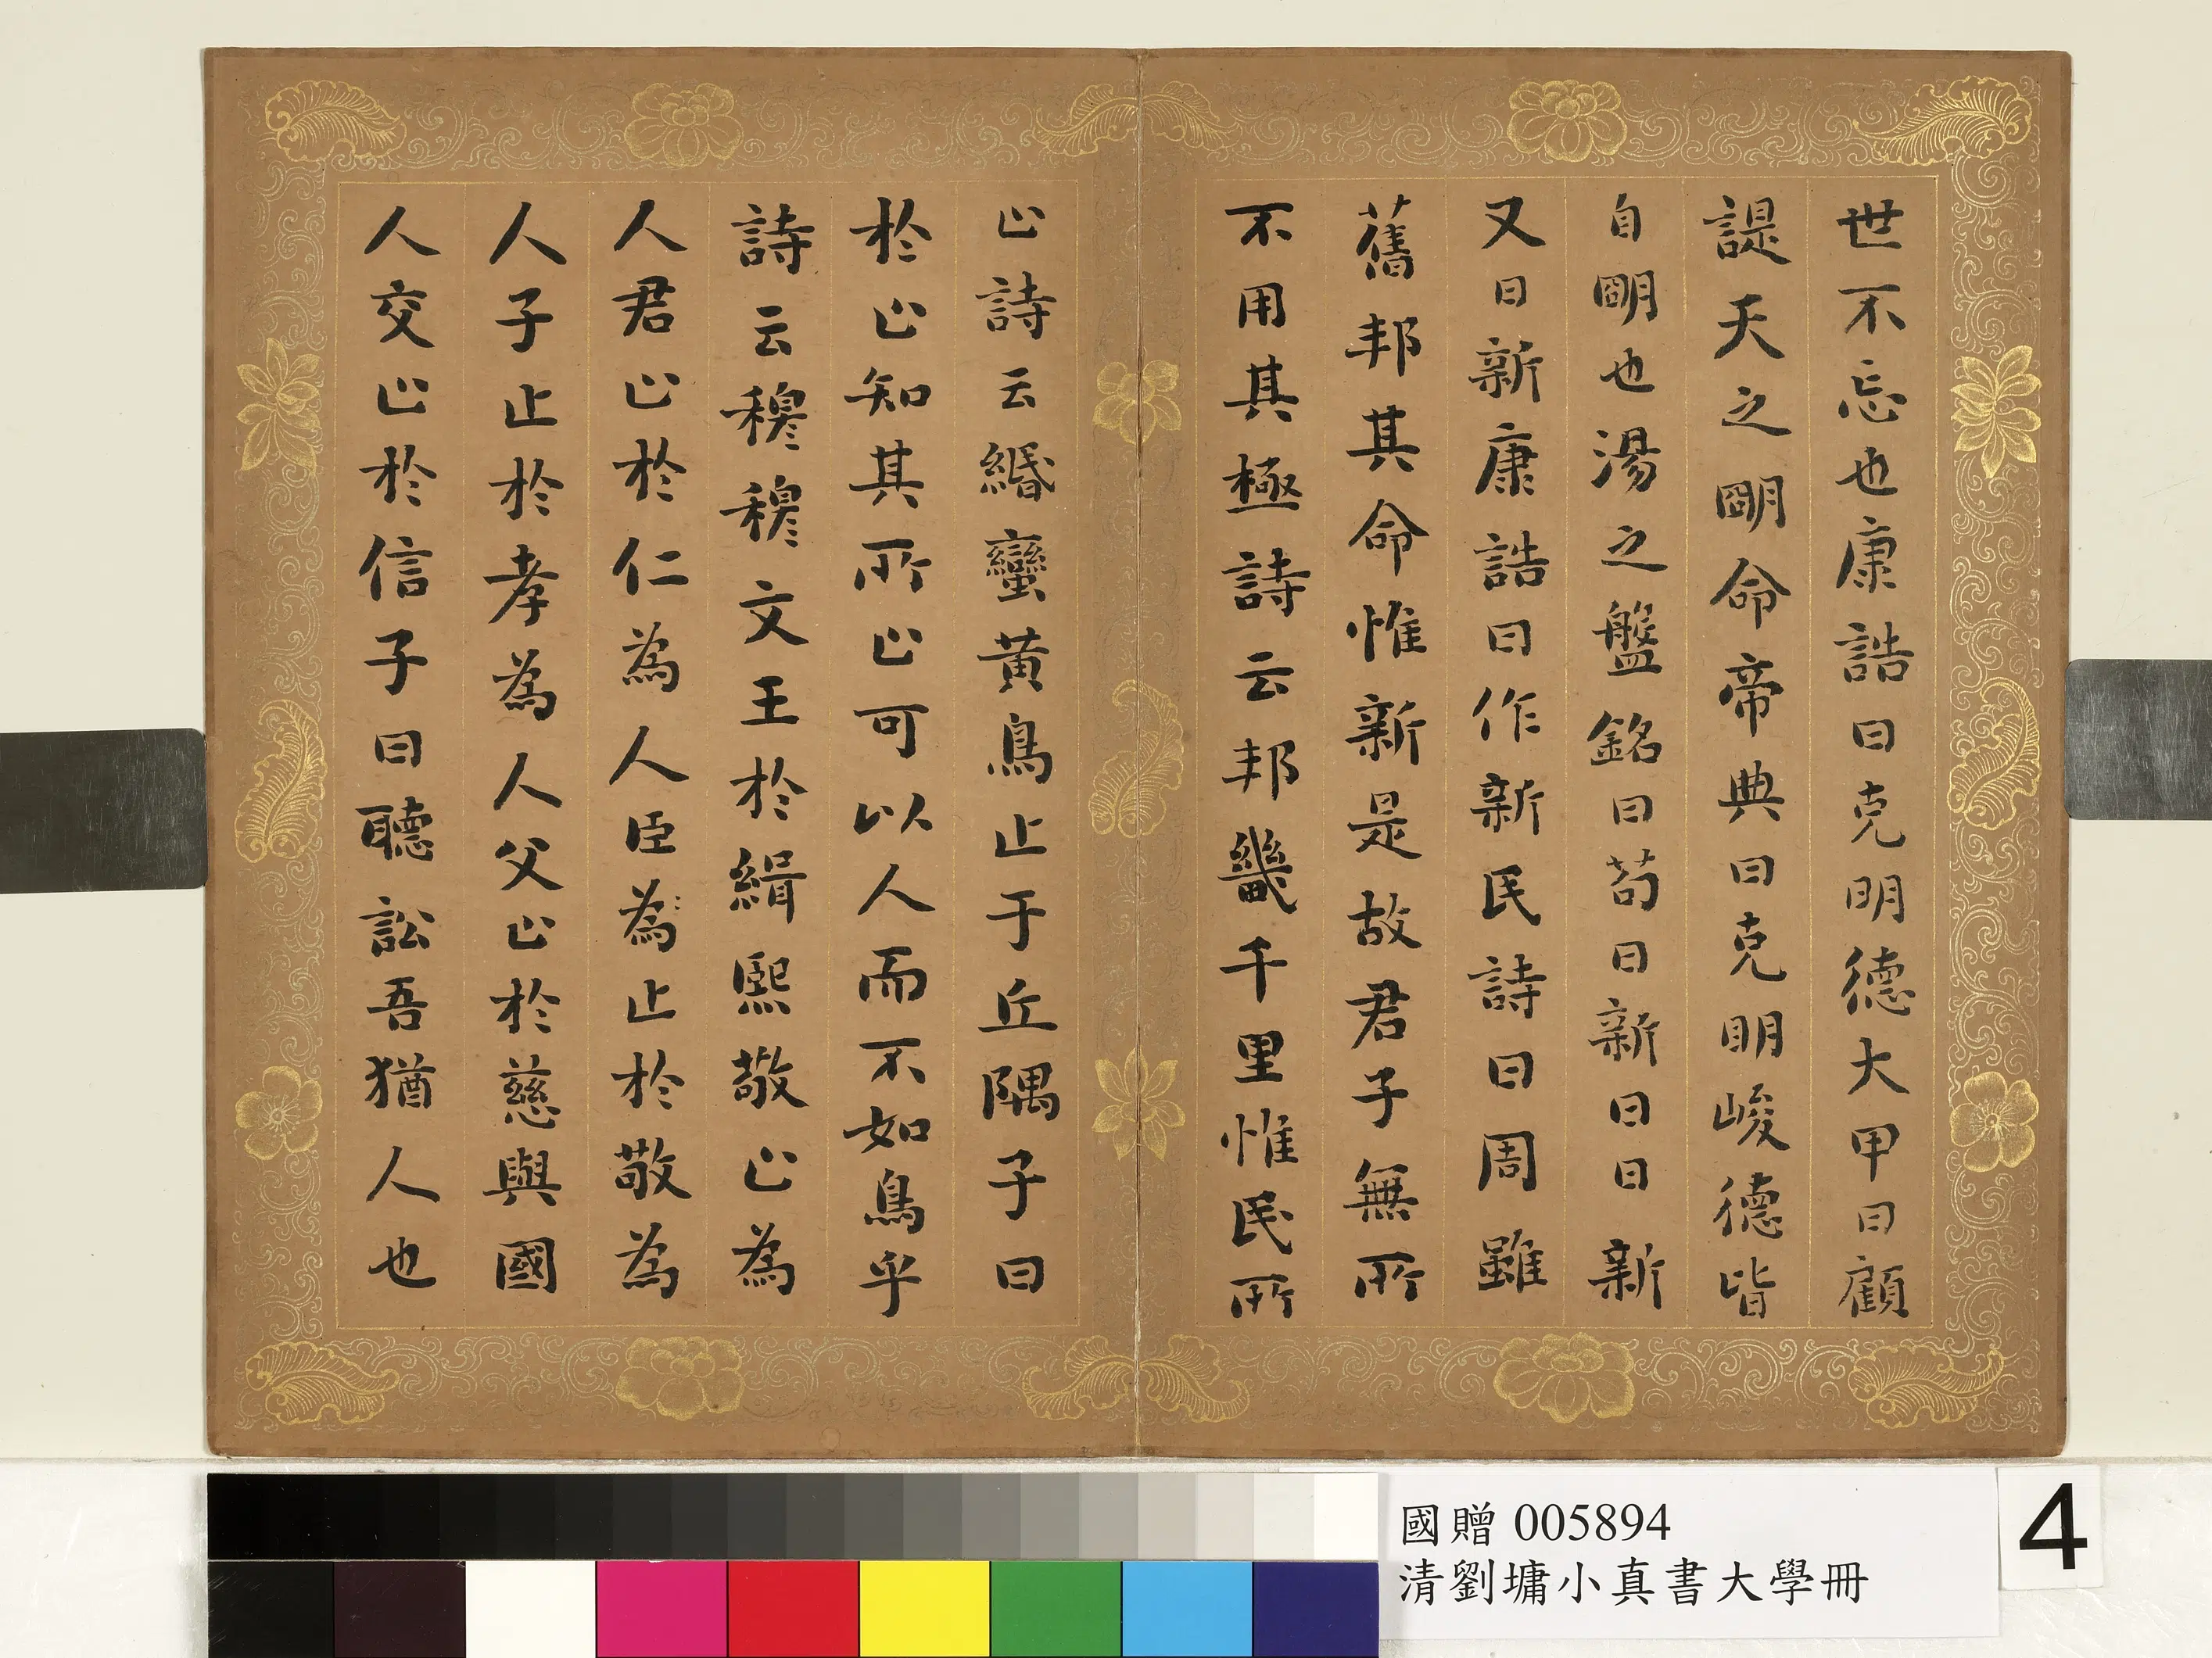 世不忘也康誥曰克明德大甲曰顧
諟天之朙命帝典曰克明峻德皆
自朙也湯之盤銘曰苟日新日日新
又日新康誥曰作新民詩曰周雖
舊邦其命惟新是故君子無所
不用其極詩云邦畿千里惟民所
止詩云緡蠻黃鳥止于丘隅子曰
於止知其所止可以人而不如鳥乎
詩云穆穆文王於緝熙敬止為
人君止於仁為人臣為止於敬為
人子止於孝為人父止於慈與國
人交止於信子曰聽訟吾猶人也
國贈 005894
清劉墉小真書大學冊
4